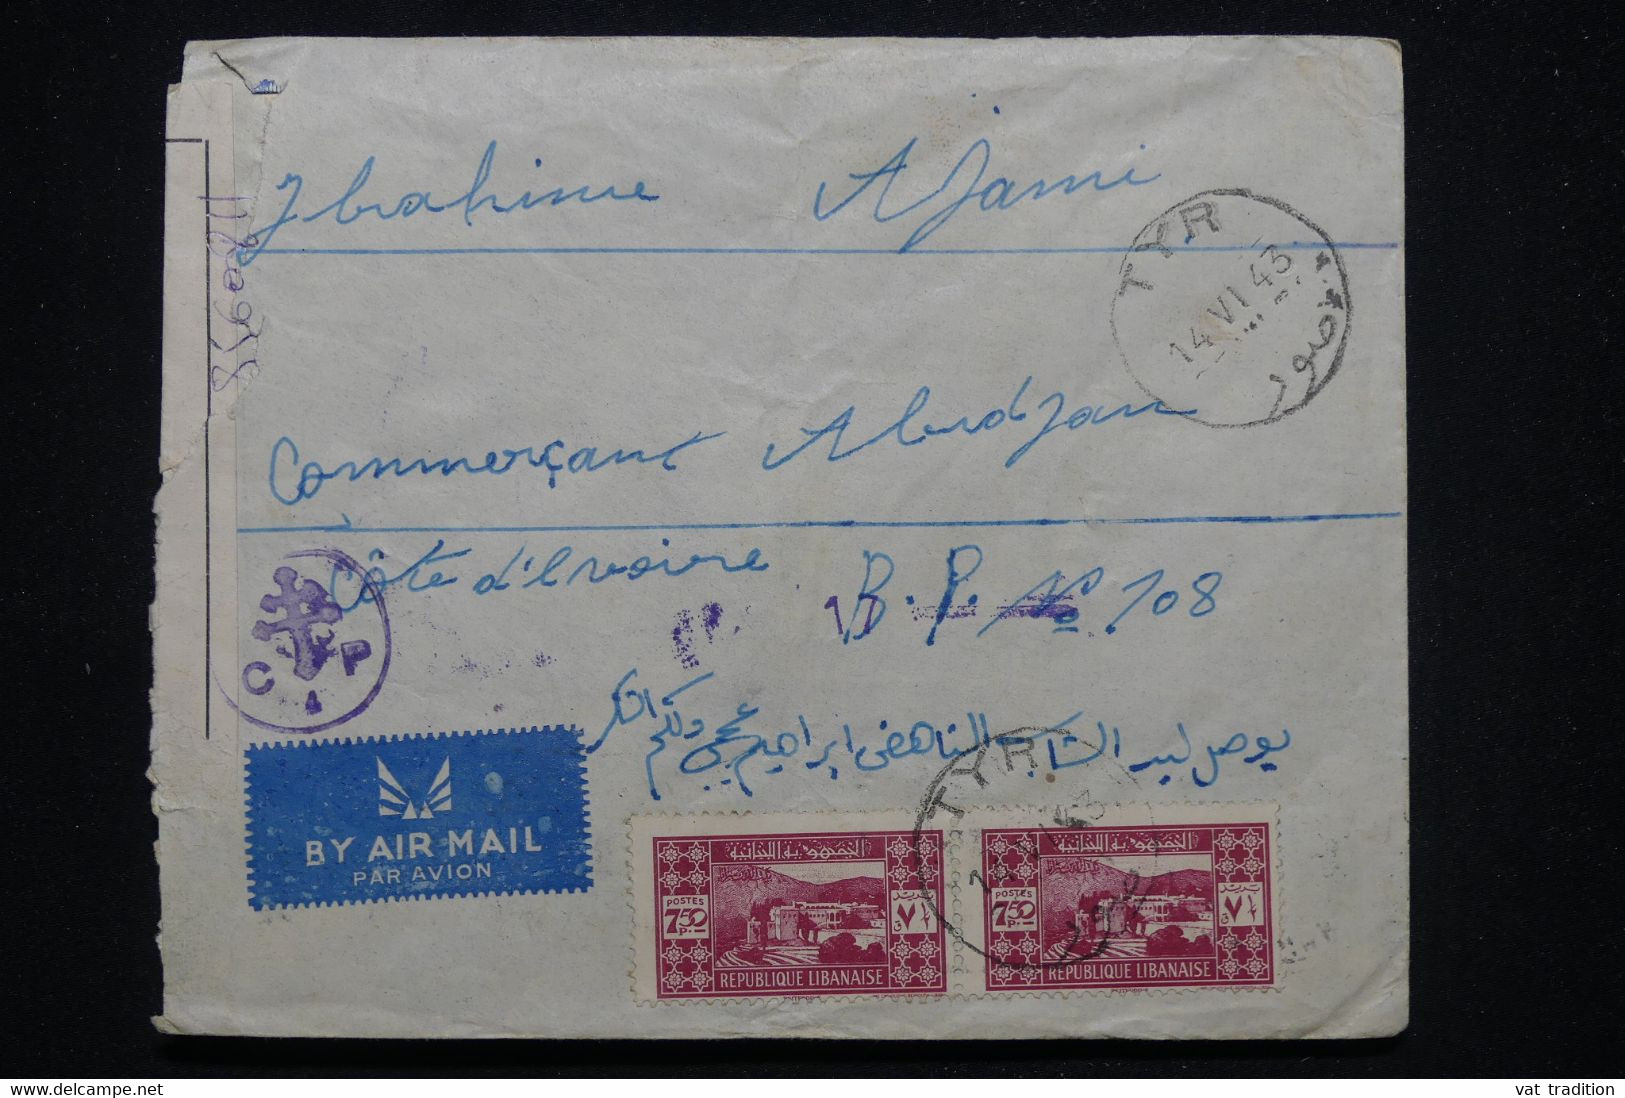 Ibrahime Ajami
TYR
14 VI 43
صور
Commerçant Abidjan
Côte d'Ivoire B.P. No 108
17
C P
4
يوصل ليد الشاب الناهض ابراهيم عجمي ولكم الشكر
TYR
صور
BY AIR MAIL
PAR AVION
الجمهورية اللبنانية
POSTES
7.50 P.
بريد
٧ ½ ق
REPUBLIQUE LIBANAISE
الجمهورية اللبنانية
POSTES
7.50 P.
بريد
٧ ½ ق
REPUBLIQUE LIBANAISE
vat tradition